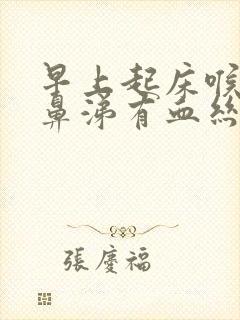 早上起床喉
鼻涕有血絲
張慶福